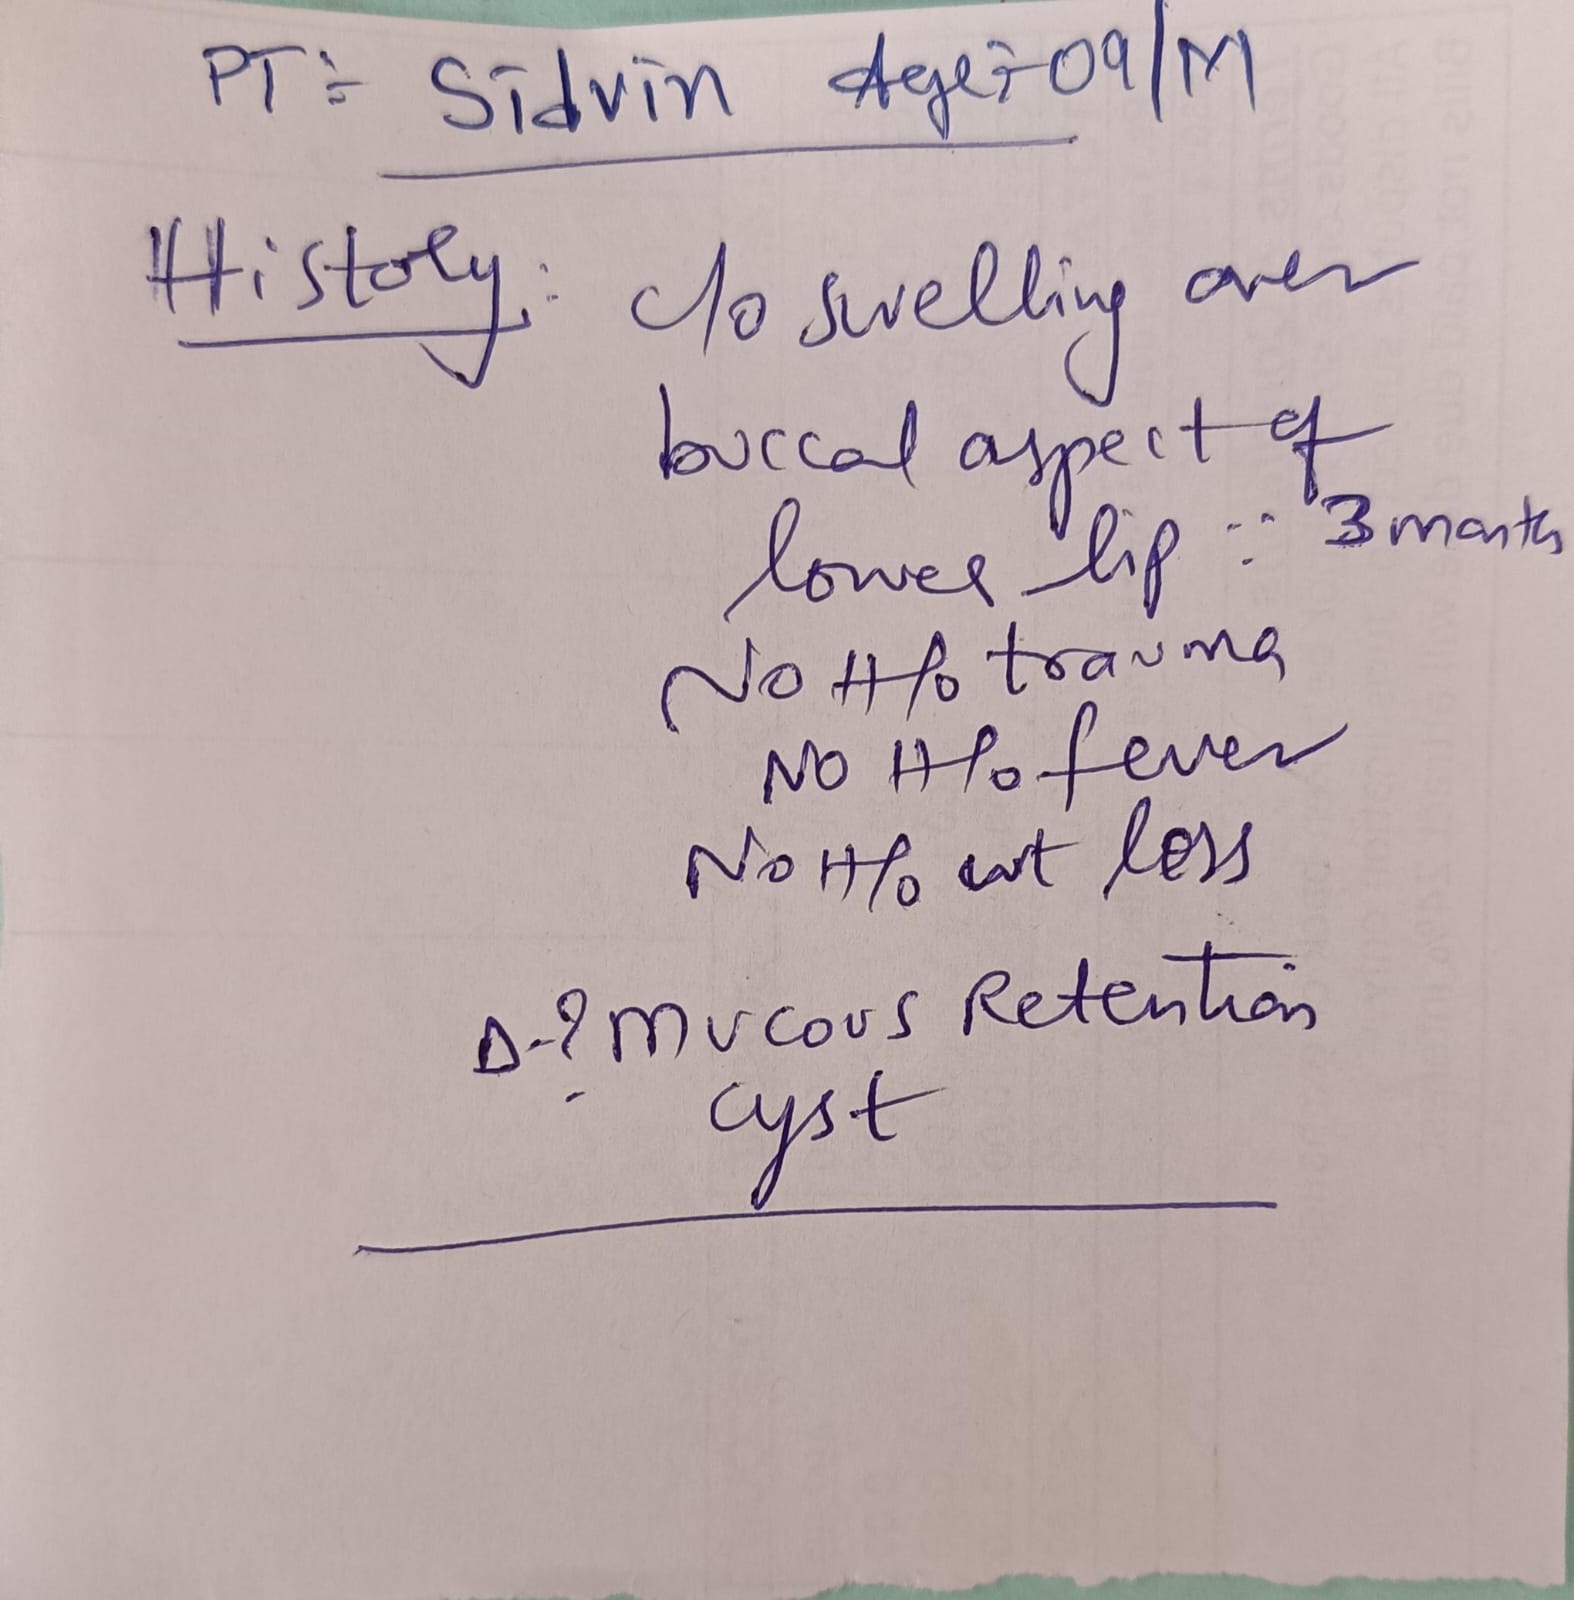 PT:- Sidvin Age:-09/M
History: c/o swelling over
buccal aspect of
lower lip :: 3 months
No H/o trauma
NO H/o fever
No H/o wt loss
Δ-? Mucous Retention
cyst